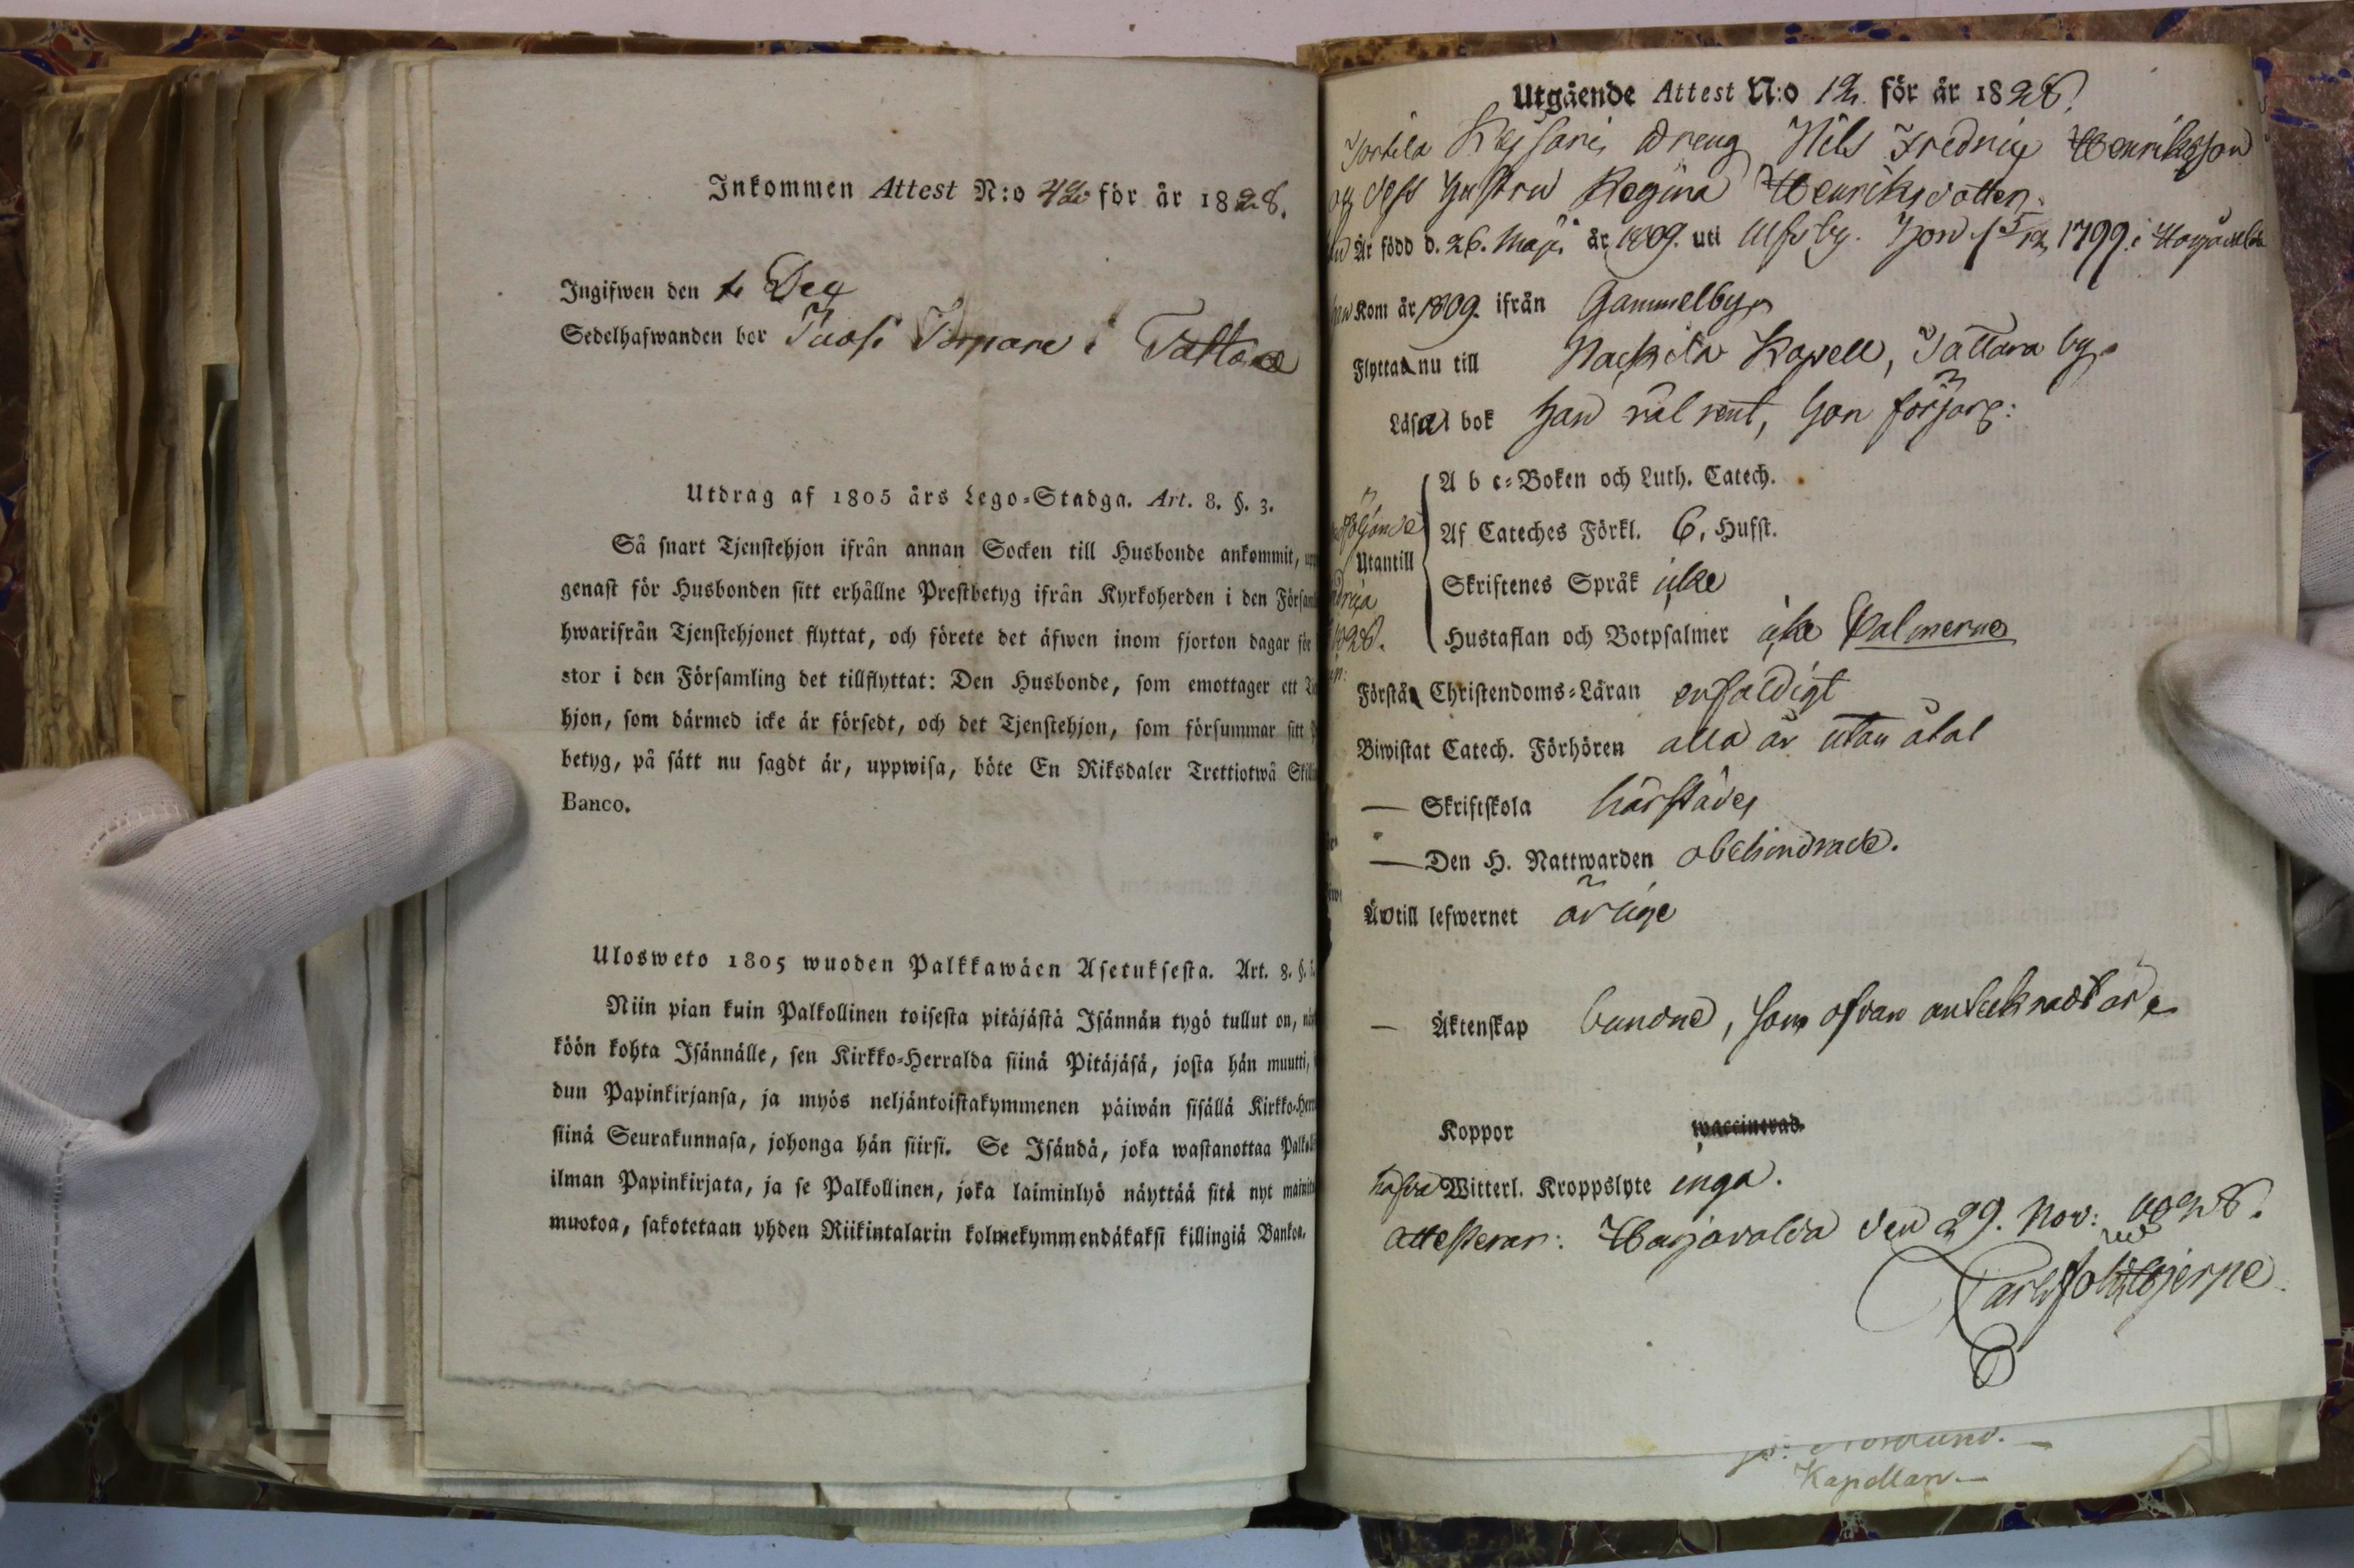 Inkommen Attest N:o 42 för år 1828.
Ingifwen den 4 Dec
Sedelhafwanden bor Juosi Torpare i Tattara
Utdrag af 1805 års Lego-Stadga. Art. 8. §. 3.
Så snart Tjenstehjon ifrån annan Socken till Husbonde ankommit,
genast för Husbonden sitt erhållne Prestbetyg ifrån Kyrkoherden i den
hwarifrån Tjenstehjonet flyttat, och förete det äfwen inom fjorton dagar för
stor i den Församling det tillflyttat: Den Husbonde, som emottager ett
hjon, som därmed icke är försedt, och det Tjenstehjon, som försummar sitt
betyg, på sätt nu sagdt är, uppwisa, böte En Riksdaler Trettiotwå
Banco.
Ulosweto 1805 wuoden Palkkawäen Asetuksesta. Art. 8. §.
Niin pian kuin Palkollinen toisesta pitäjästä Isännän tygö tullut on,
köön kohta Isännälle, sen Kirkko-Herralda siinä Pitäjäsä, josta hän muutti,
dun Papinkirjansa, ja myös neljäntoistakymmenen päiwän sisällä
siinä Seurakunnasa, johonga hän siirsi. Se Isändä, joka wastanottaa
ilman Papinkirjata, ja se Palkollinen, joka laiminlyö näyttää sitä nyt
muotoa, sakotetaan yhden Riikintalarin kolmekymmendäkaksi killingiä Bankoa.
Utgående Attest N:o 12. för år 1828.
Torkila Keisari, dreng Nils Fredric Henriksson
och dess hustru Regina Henriksdotter.
Är född d. 26. Maji år 1809. uti Ulfsby. Hon f. 5/12 1799. i
Kom år 1809. ifrån Gammelby
Flyttar nu till Nackila Kapell, Tattara by
Läsa i bok han väl rent, hon förswarl:
A b c-Boken och Luth. Catech.
Utantill
Af Cateches Förkl. 6, Hufst.
Skriftenes Språk icke
Hustaflan och Botpsalmer icke Psalmerne
Förstå Christendoms-Läran enfaldigt
Biwistat Catech. Förhören alla år utan åtal
— Skriftskola härstädes
— Den H. Nattwarden obehindrade.
Äro till lefwernet ärlige
— Äktenskap bundne, som ofvan antecknadt är
Koppor waccinerad.
hafva Witterl. Kroppslyte inga.
attesterar: Harjavalda den 29. Nov: 1828.
Kapellan.—